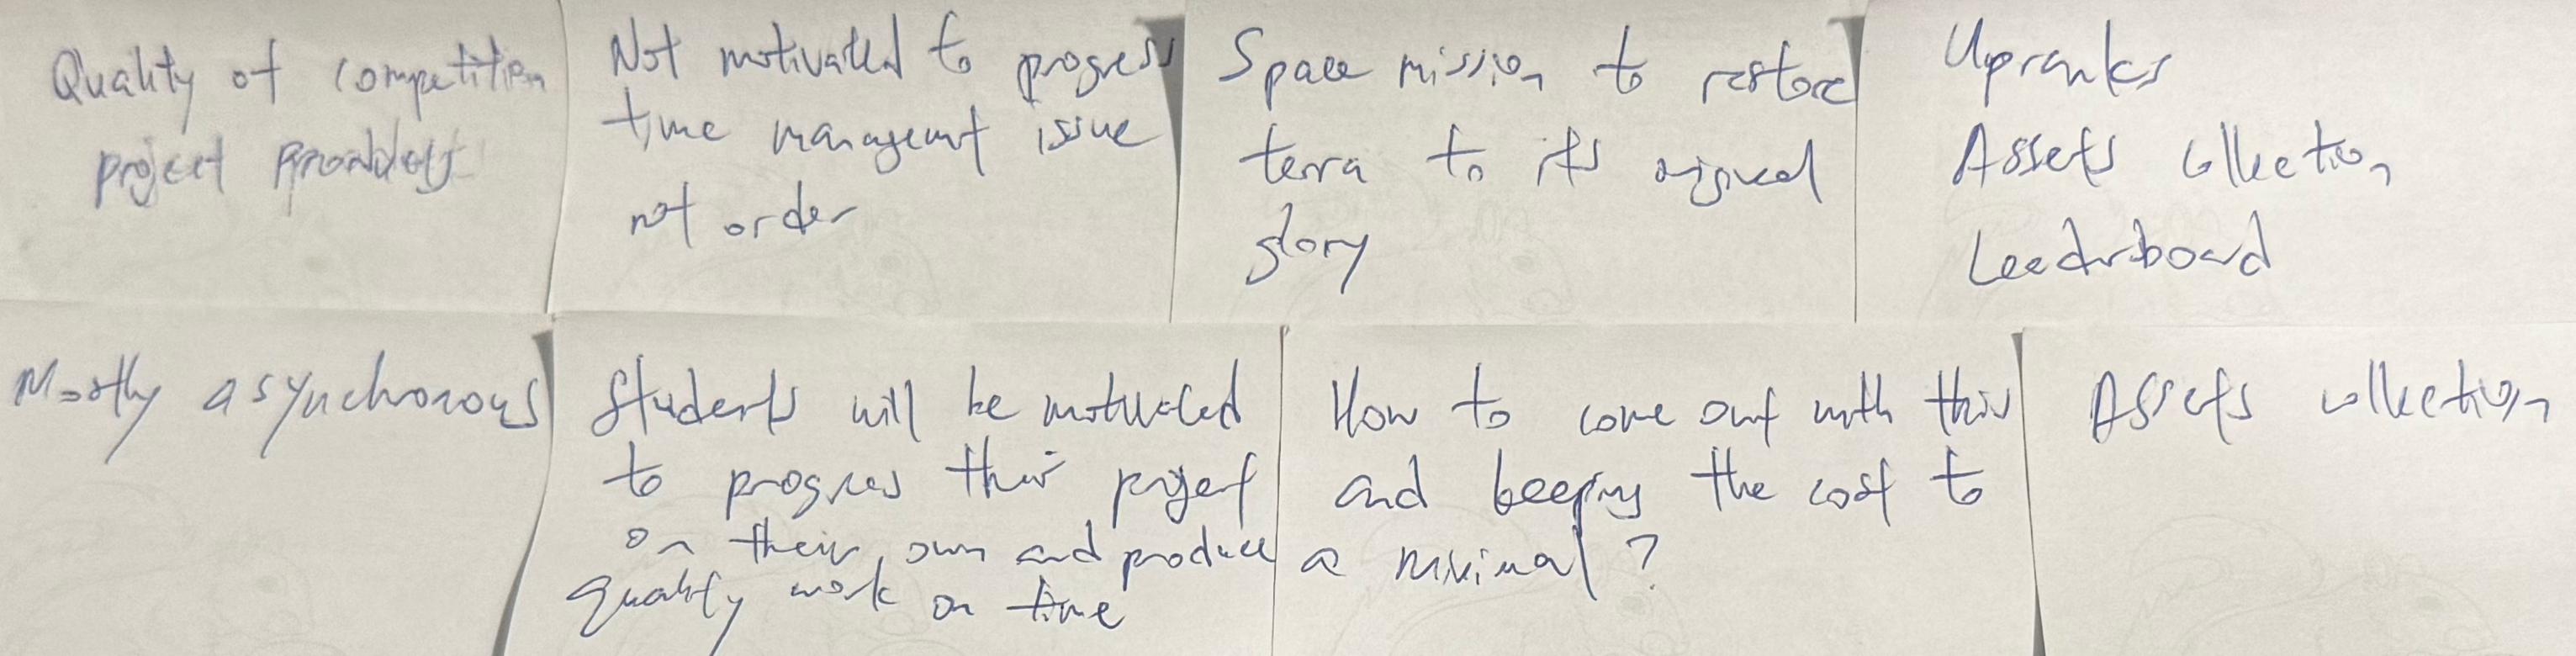 Quality of competition
project
Not motivated to progress
time management issue
not order
Space mission to restore
terra to its original
glory
Upranks
Assets collection
Leaderboard
Mostly asynchronous
Students will be motivated
to progress their project
on their own and produce
quality work on time
How to come out with this
and keeping the cost to
a minimal?
Assets collection